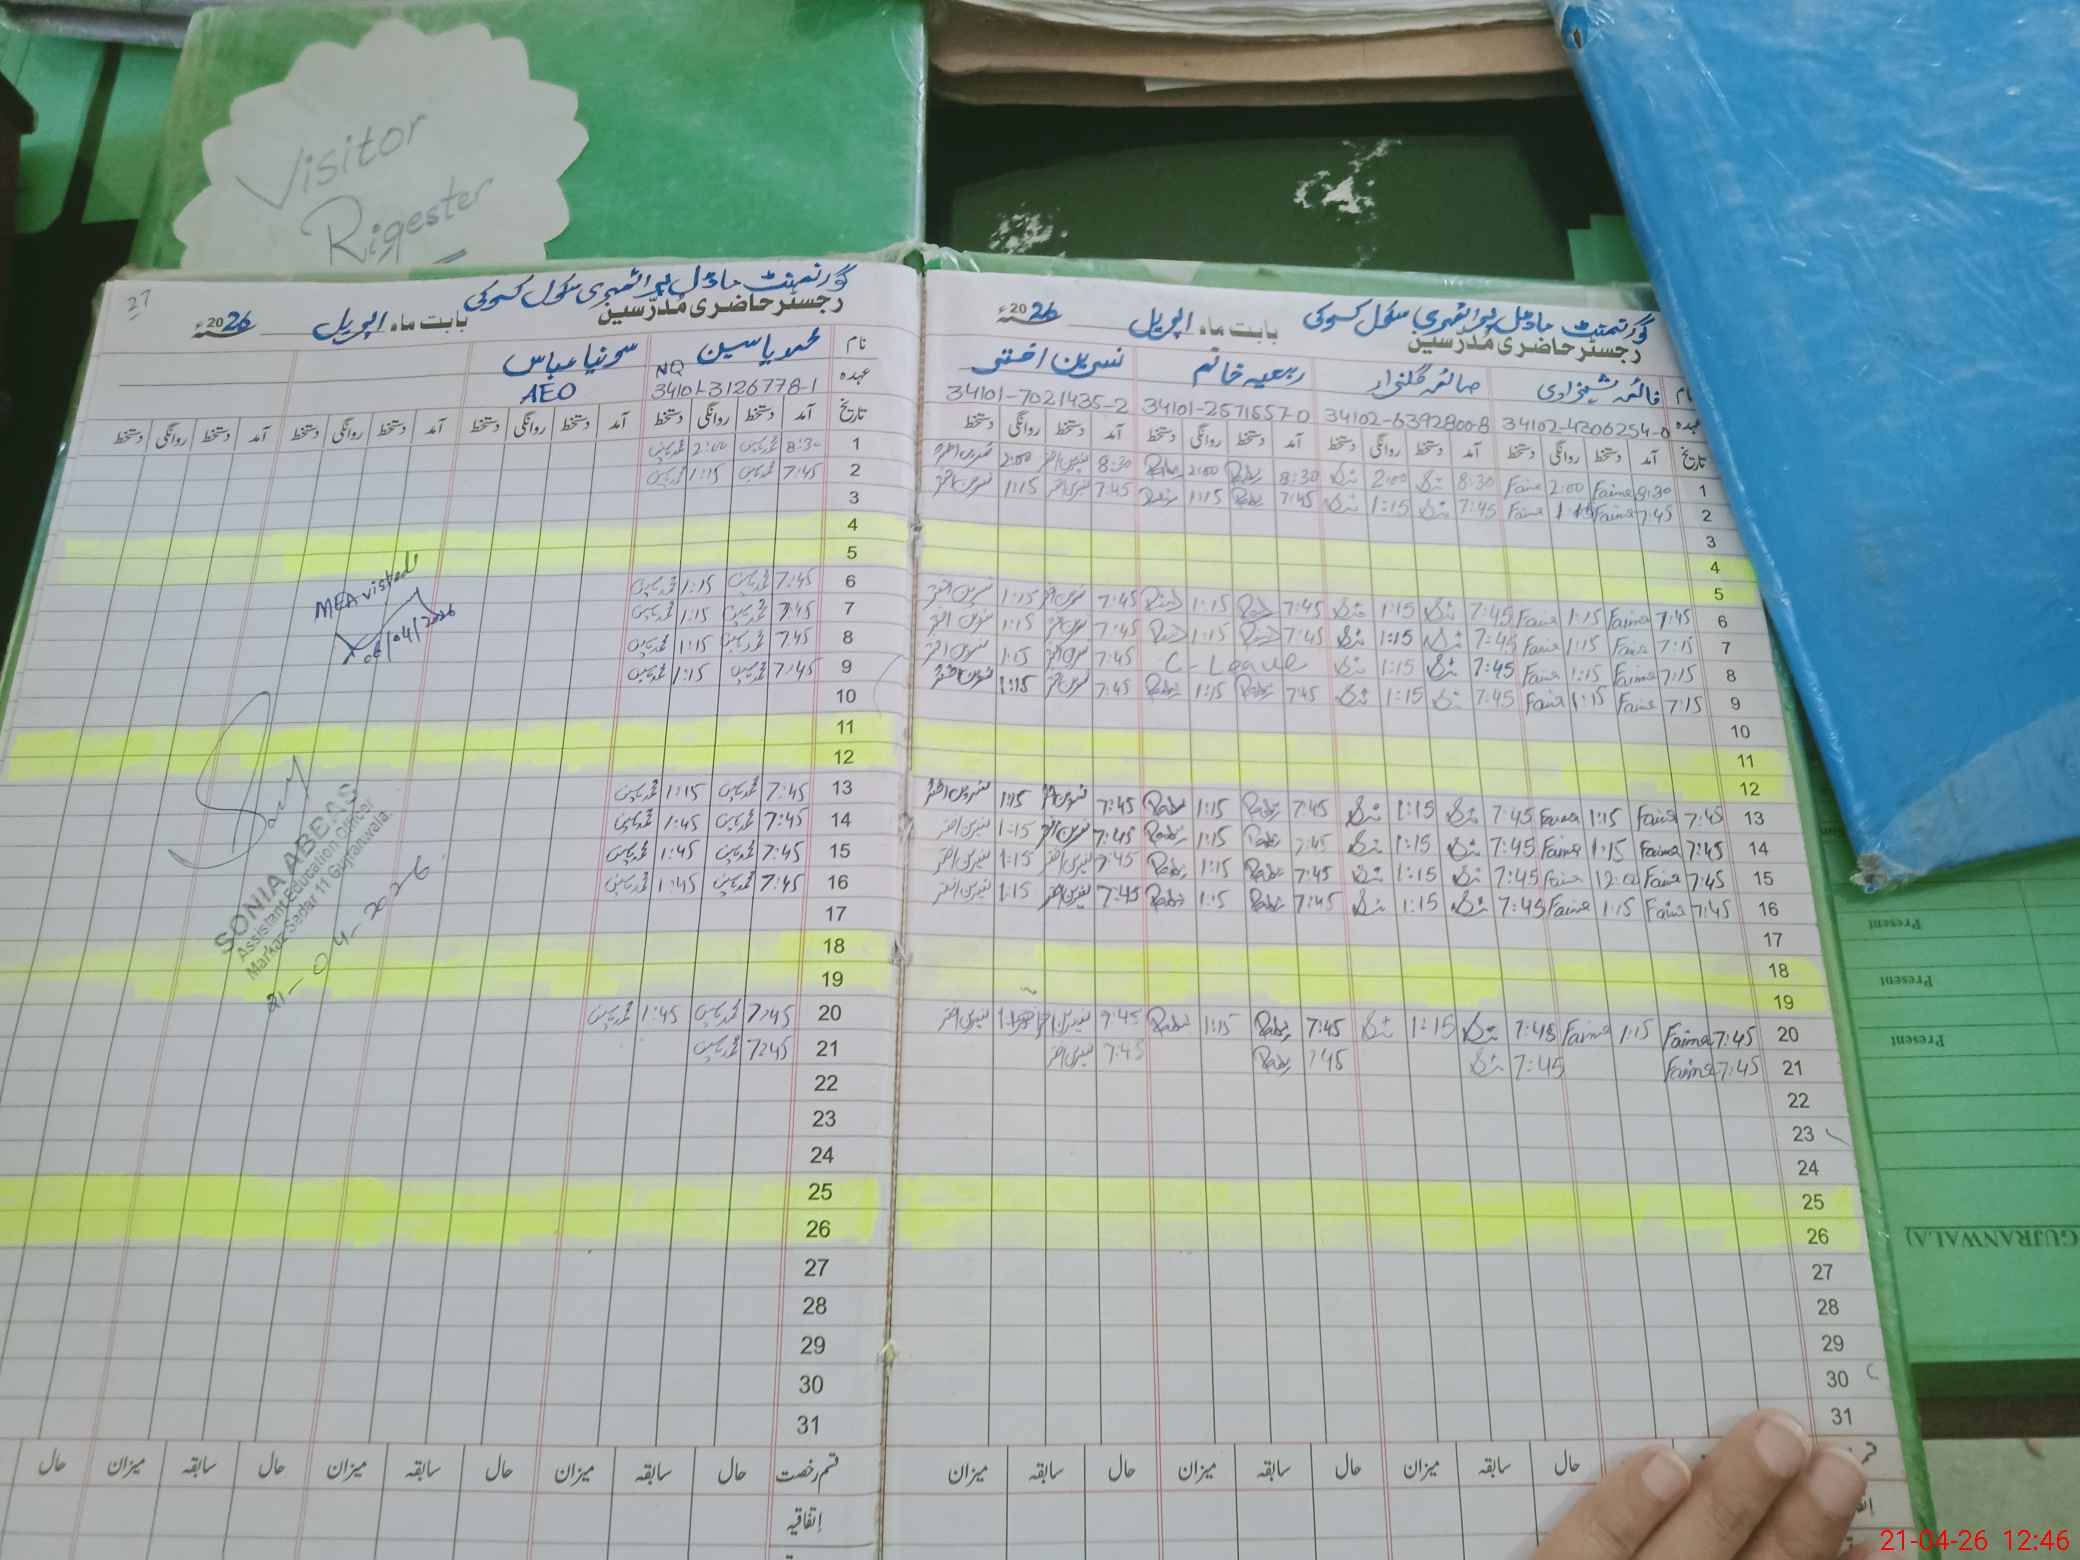 Visitor
Rigester
27
گورنمنٹ ماڈل پرائمری سکول کسوکی
رجسٹر حاضری مُدرّسین بابت ماہ اپریل 2026ء
نام محمد یاسین سونیا عباس
عہدہ NQ 34101-3126778-1 AEO
تاریخ آمد دستخط روانگی دستخط آمد دستخط روانگی دستخط آمد دستخط روانگی دستخط آمد دستخط روانگی دستخط
1 8:30 محمد یاسین 2:00 محمد یاسین
2 7:45 محمد یاسین 1:15 محمد یاسین
3
4
5
6 7:45 محمد یاسین 1:15 محمد یاسین
7 7:45 محمد یاسین 1:15 محمد یاسین
8 7:45 محمد یاسین 1:15 محمد یاسین
9 7:45 محمد یاسین 1:15 محمد یاسین
10
11
12
13 7:45 محمد یاسین 1:15 محمد یاسین
14 7:45 محمد یاسین 1:45 محمد یاسین
15 7:45 محمد یاسین 1:45 محمد یاسین
16 7:45 محمد یاسین 1:45 محمد یاسین
17
18
19
20 7:45 محمد یاسین 1:45 محمد یاسین
21 7:45 محمد یاسین
22
23
24
25
26
27
28
29
30
31
MEA visited
06/04/2026
SONIA ABBAS
Assistant Education Officer
Markaz Sadar 11 Gujranwala.
21-04-2026
قسم رخصت حال سابقہ میزان حال سابقہ میزان حال سابقہ میزان حال
اِتفاقیہ
گورنمنٹ ماڈل پرائمری سکول کسوکی
رجسٹر حاضری مُدرّسین بابت ماہ اپریل 2026ء
نام فائمہ شہزادی صائمہ گلزار ربعیہ خانم نسرین اختر
عہدہ 34102-4306254-0 34102-6392800-8 34101-2571557-0 34101-7021435-2
تاریخ آمد دستخط روانگی دستخط آمد دستخط روانگی دستخط آمد دستخط روانگی دستخط آمد دستخط روانگی دستخط
1 8:30 Faima 2:00 Faima 8:30 2:00 8:30 2:00 8:30 نسرین اختر 2:00 نسرین اختر
2 7:45 Faima 1:15 Faima 7:45 1:15 7:45 1:15 7:45 نسرین اختر 1:15 نسرین اختر
3
4
5
6 7:45 Faima 1:15 Faima 7:45 1:15 7:45 1:15 7:45 نسرین اختر 1:15 نسرین اختر
7 7:15 Faima 1:15 Faima 7:45 1:15 7:45 1:15 7:45 نسرین اختر 1:15 نسرین اختر
8 7:15 Faima 1:15 Faima 7:45 1:15 C-Leave 7:45 نسرین اختر 1:15 نسرین اختر
9 7:15 Faima 1:15 Faima 7:45 1:15 7:45 1:15 7:45 نسرین اختر 1:15 نسرین اختر
10
11
12
13 7:45 Faima 1:15 Faima 7:45 1:15 7:45 1:15 7:45 نسرین اختر 1:15 نسرین اختر
14 7:45 Faima 1:15 Faima 7:45 1:15 7:45 1:15 7:45 نسرین اختر 1:15 نسرین اختر
15 7:45 Faima Faima 7:45 1:15 7:45 1:15 7:45 نسرین اختر 1:15 نسرین اختر
16 7:45 Faima 1:15 Faima 7:45 1:15 7:45 1:15 7:45 نسرین اختر 1:15 نسرین اختر
17
18
19
20 7:45 Faima 1:15 Faima 7:45 1:15 7:45 1:15 7:45 نسرین اختر نسرین اختر
21 7:45 Faima 7:45 7:45 7:45 نسرین اختر
22
23
24
25
26
27
28
29
30
31
حال سابقہ میزان حال سابقہ میزان حال سابقہ میزان
Present
Present
Present
GUJRANWALA)
21-04-26 12:46